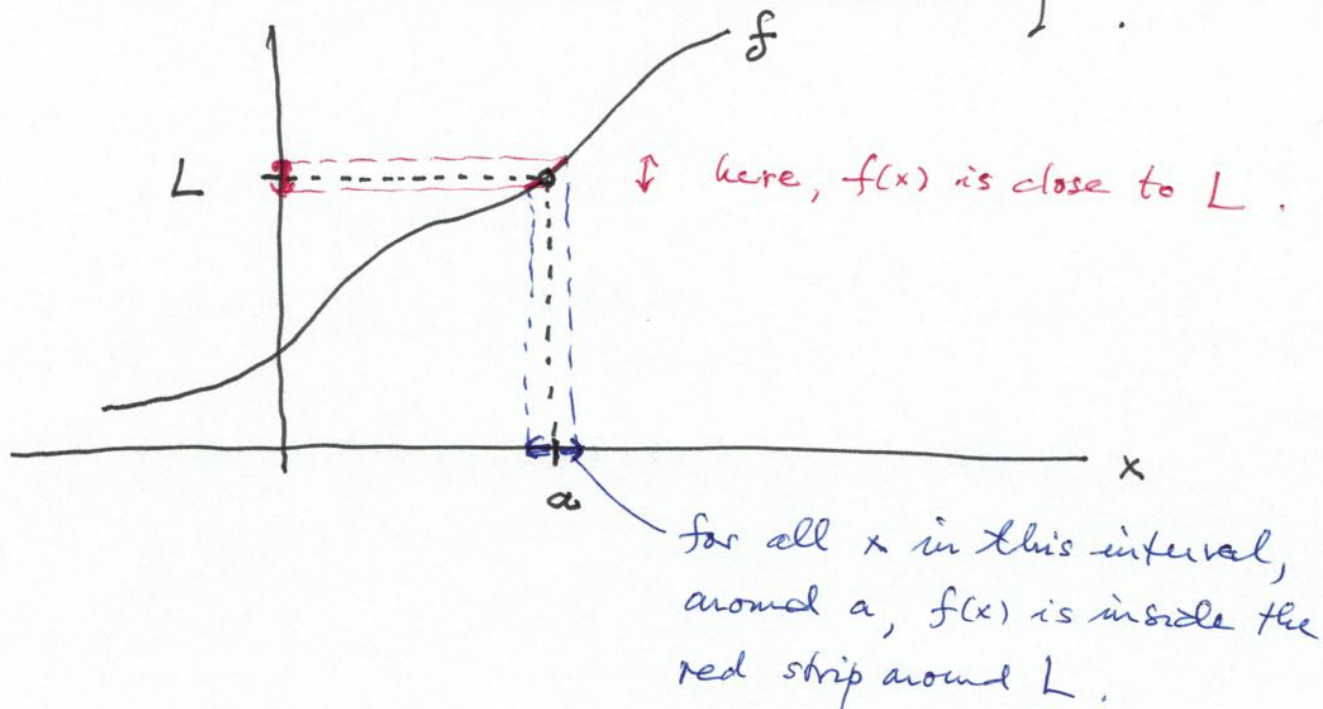 f
L
here, f(x) is close to L.
x
a
for all x in this interval,
around a, f(x) is inside the
red strip around L.